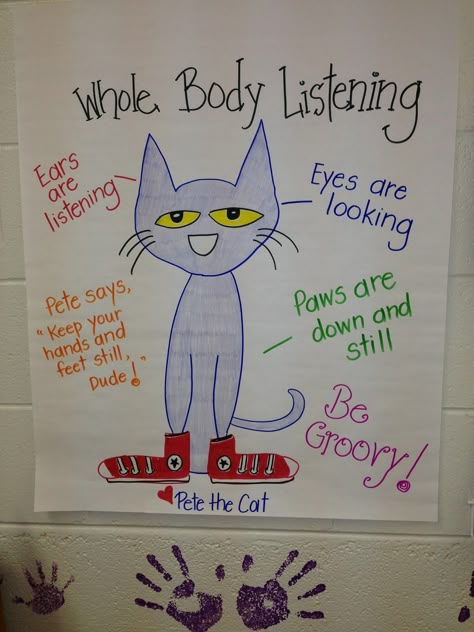 Whole Body Listening
Ears
are
listening
Eyes are
looking
Pete says,
"Keep your
hands and
feet still,
Dude!"
Paws are
down and
still
Be
Groovy!
Pete the Cat